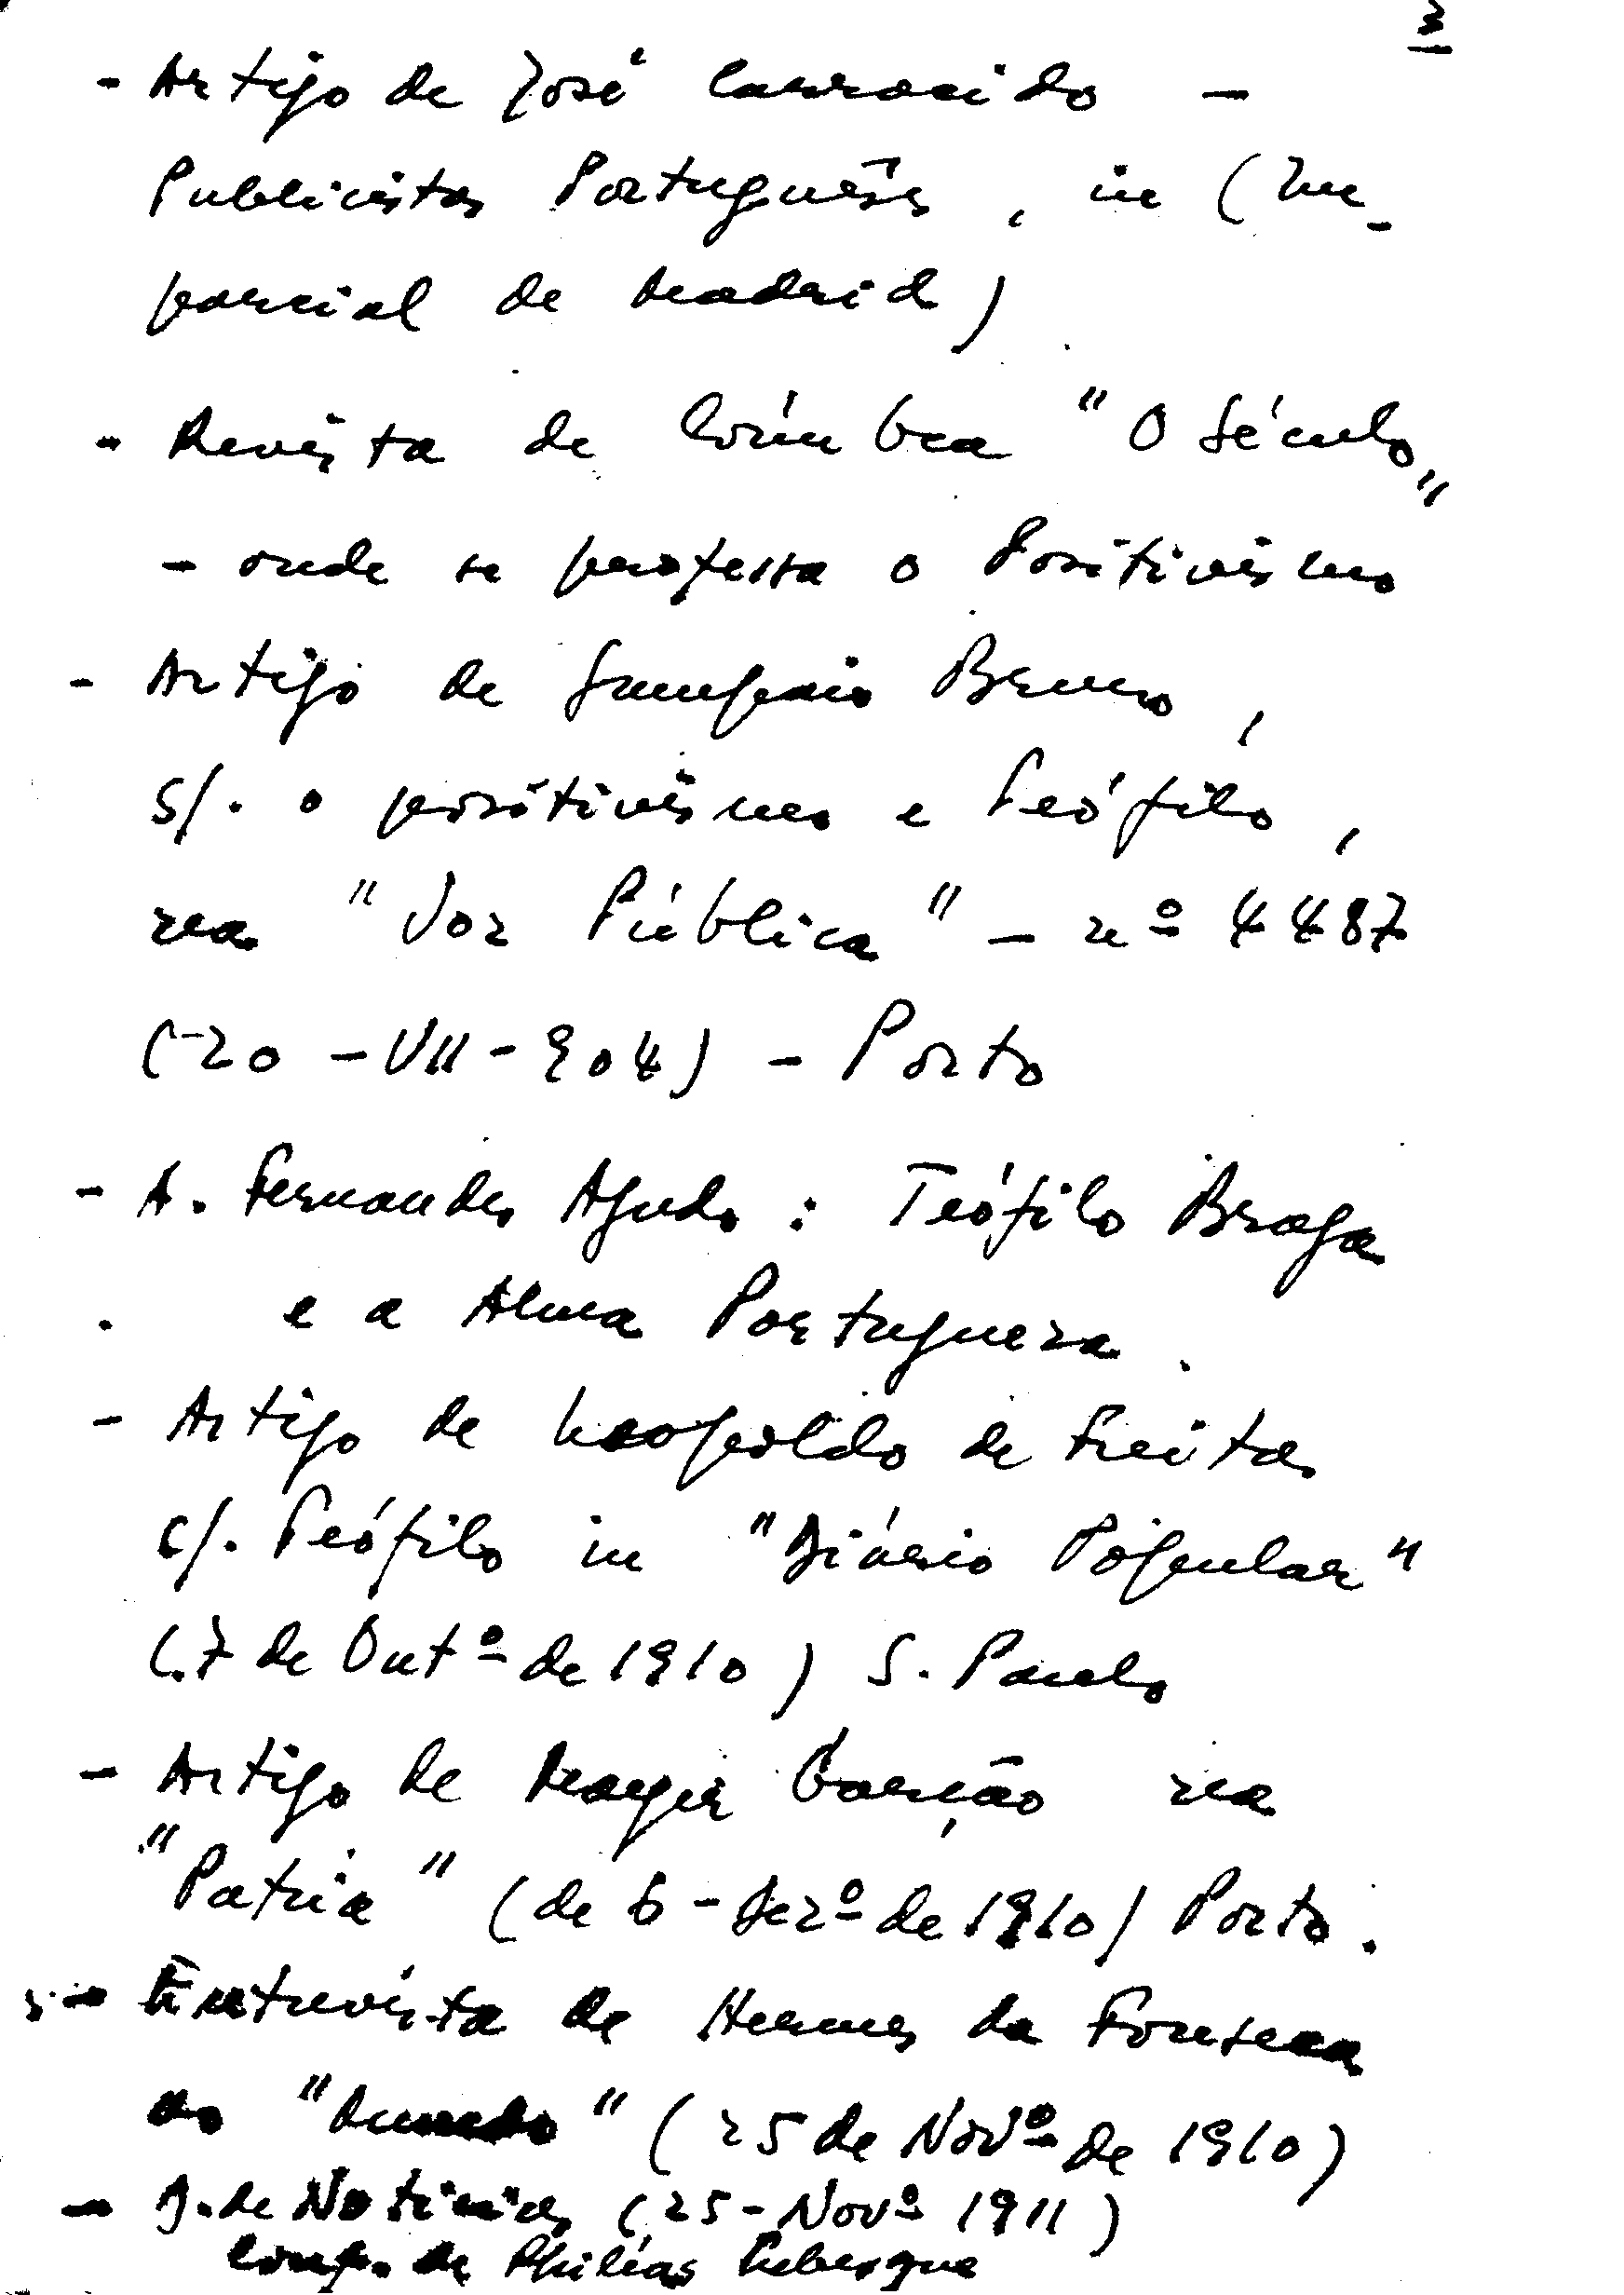 3
- Artigo de José Carracido -
Publicistas Portuguêses, in (Im-
parcial de Madrid)
- Revista de Coímbra "O Século"
- onde se professa o Positivismo
- Artigo de Sampaio Bruno,
s/. o positivismo e Teófilo,
na "Voz Pública" - nº 4487
(20 - VII - 904) - Porto
- A. Fernandes Agudo : Teófilo Braga
e a Alma Portugueza.
- Artigo de Leopoldo de Freitas
s/. Teófilo in "Diário Popular"
(7 de Outº de 1910) S. Paulo
- Artigo de Mayer Garção na
"Patria" (de 6 - Dezº de 1910) Porto.
- Entrevista de Hermes da Fonseca
ao "Mundo" (25 de Novº de 1910)
- J. de Noticias (25 - Novº 1911)
Conf. de Philéas Lebesgue